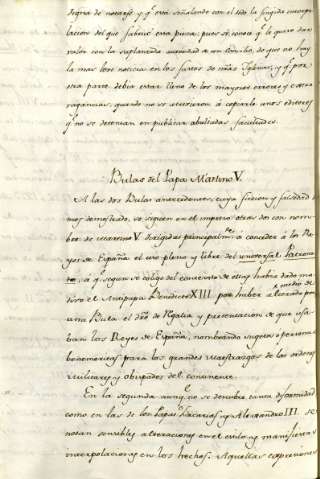 digna de notarse, y q.e está señalando con el dedo la fingida interpo-
lacion del que fabricó esta pieza: pues se conoce q.e le quiso dar
valor con la suplantada autoridad de un Concilio, de que no hay
la mas leve noticia en los fastos de nuestra Iglesia; y q.e por
otra parte debia estar lleno de los mayores errores y extra-
vagancias, quando no se atrevieron á coparle unos editores
q.e no se detenian en publicar abultadas falsedades.
Bulas del Papa Martino V.
A las dos Bulas antecedentes, cuya ficcion y falsedad he-
mos demostrado, se siguen en el impreso otras dos con nom-
bre de Martino V. dirigidas principalm.te á conceder á los Re-
yes de España el uso pleno y libre del universal Patrona-
to, á q.e segun el código del concreto de ellas habia dado mo-
tivo el Antipapa Benedicto XIII. por haber alterado por medio de
una Bula el dro. de Regalia y presentacion de que usa-
ban los Reyes de España, nombrando sugetos ó personas
benemeritas para los grandes Maestrazgos de las ordenes
militares, y obispados del continente.
En la segunda aunq.e no se descubre tanta disformidad
como en las de los Papas Zacarias y Alexandro III. se
notan sensibles alteraciones en el estilo, y manifiestas
interpolaciones en los hechos. Aquellas expresiones